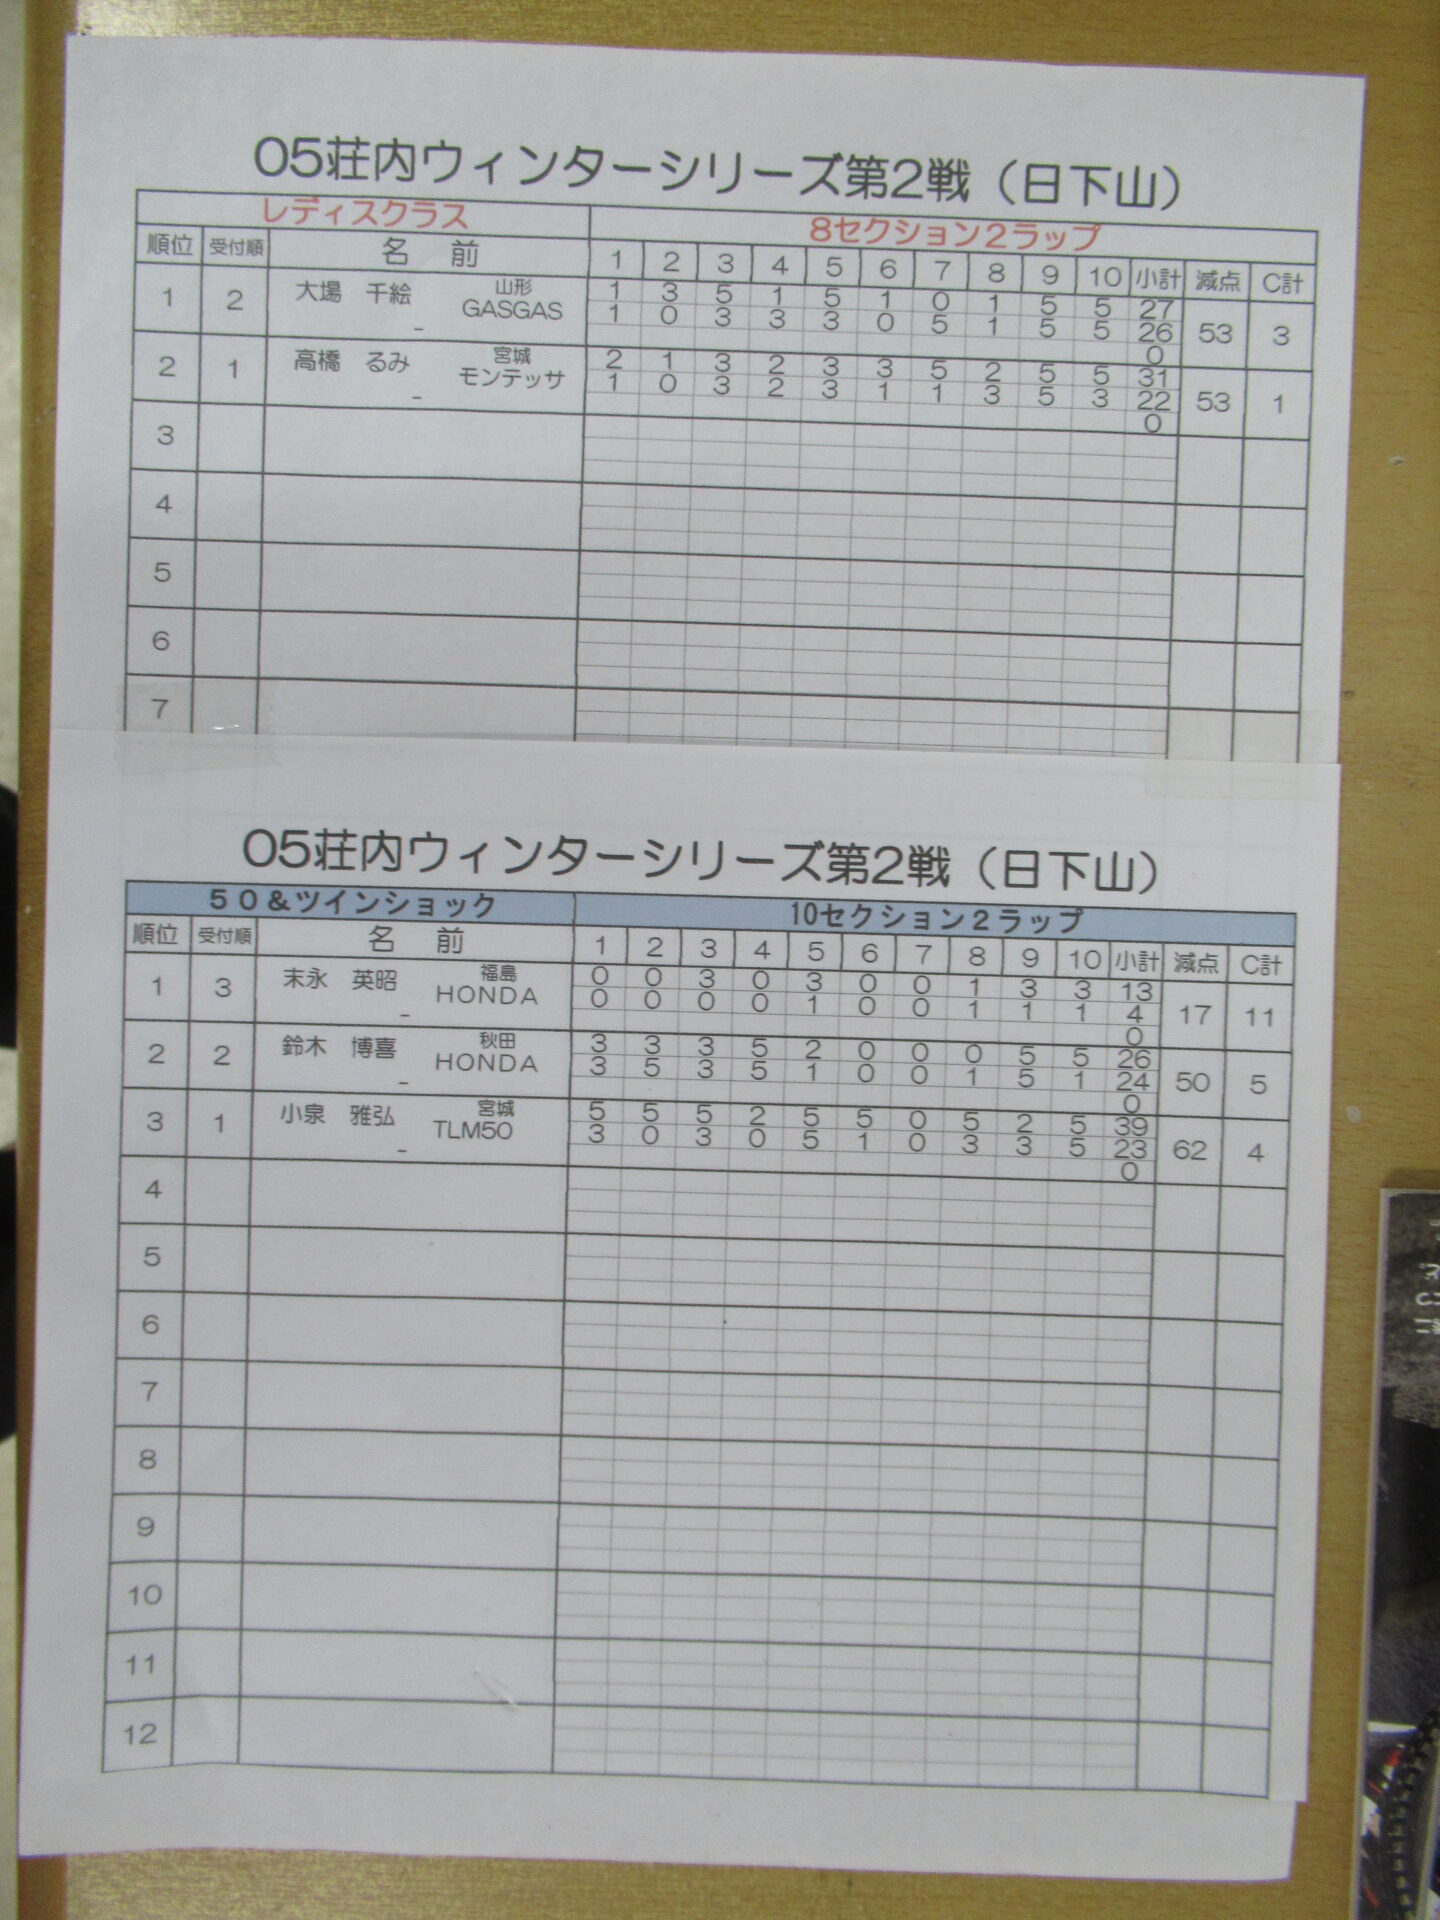 05荘内ウィンターシリーズ第2戦（日下山）
レディスクラス 8セクション2ラップ
順位 受付順 名 前 1 2 3 4 5 6 7 8 9 10 小計 減点 C計
1 2 大場 千絵 山形 1 3 5 1 5 1 0 1 5 5 27
GASGAS 1 0 3 3 3 0 5 1 5 5 26 53 3
- 0
2 1 高橋 るみ 宮城 2 1 3 2 3 3 5 2 5 5 31
モンテッサ 1 0 3 2 3 1 1 3 5 3 22 53 1
- 0
3
4
5
6
7
05荘内ウィンターシリーズ第2戦（日下山）
５０&ツインショック 10セクション2ラップ
順位 受付順 名 前 1 2 3 4 5 6 7 8 9 10 小計 減点 C計
1 3 末永 英昭 福島 0 0 3 0 3 0 0 1 3 3 13
HONDA 0 0 0 0 1 0 0 1 1 1 4 17 11
- 0
2 2 鈴木 博喜 秋田 3 3 3 5 2 0 0 0 5 5 26
HONDA 3 5 3 5 1 0 0 1 5 1 24 50 5
- 0
3 1 小泉 雅弘 宮城 5 5 5 2 5 5 0 5 2 5 39
TLM50 3 0 3 0 5 1 0 3 3 5 23 62 4
- 0
4
5
6
7
8
9
10
11
12